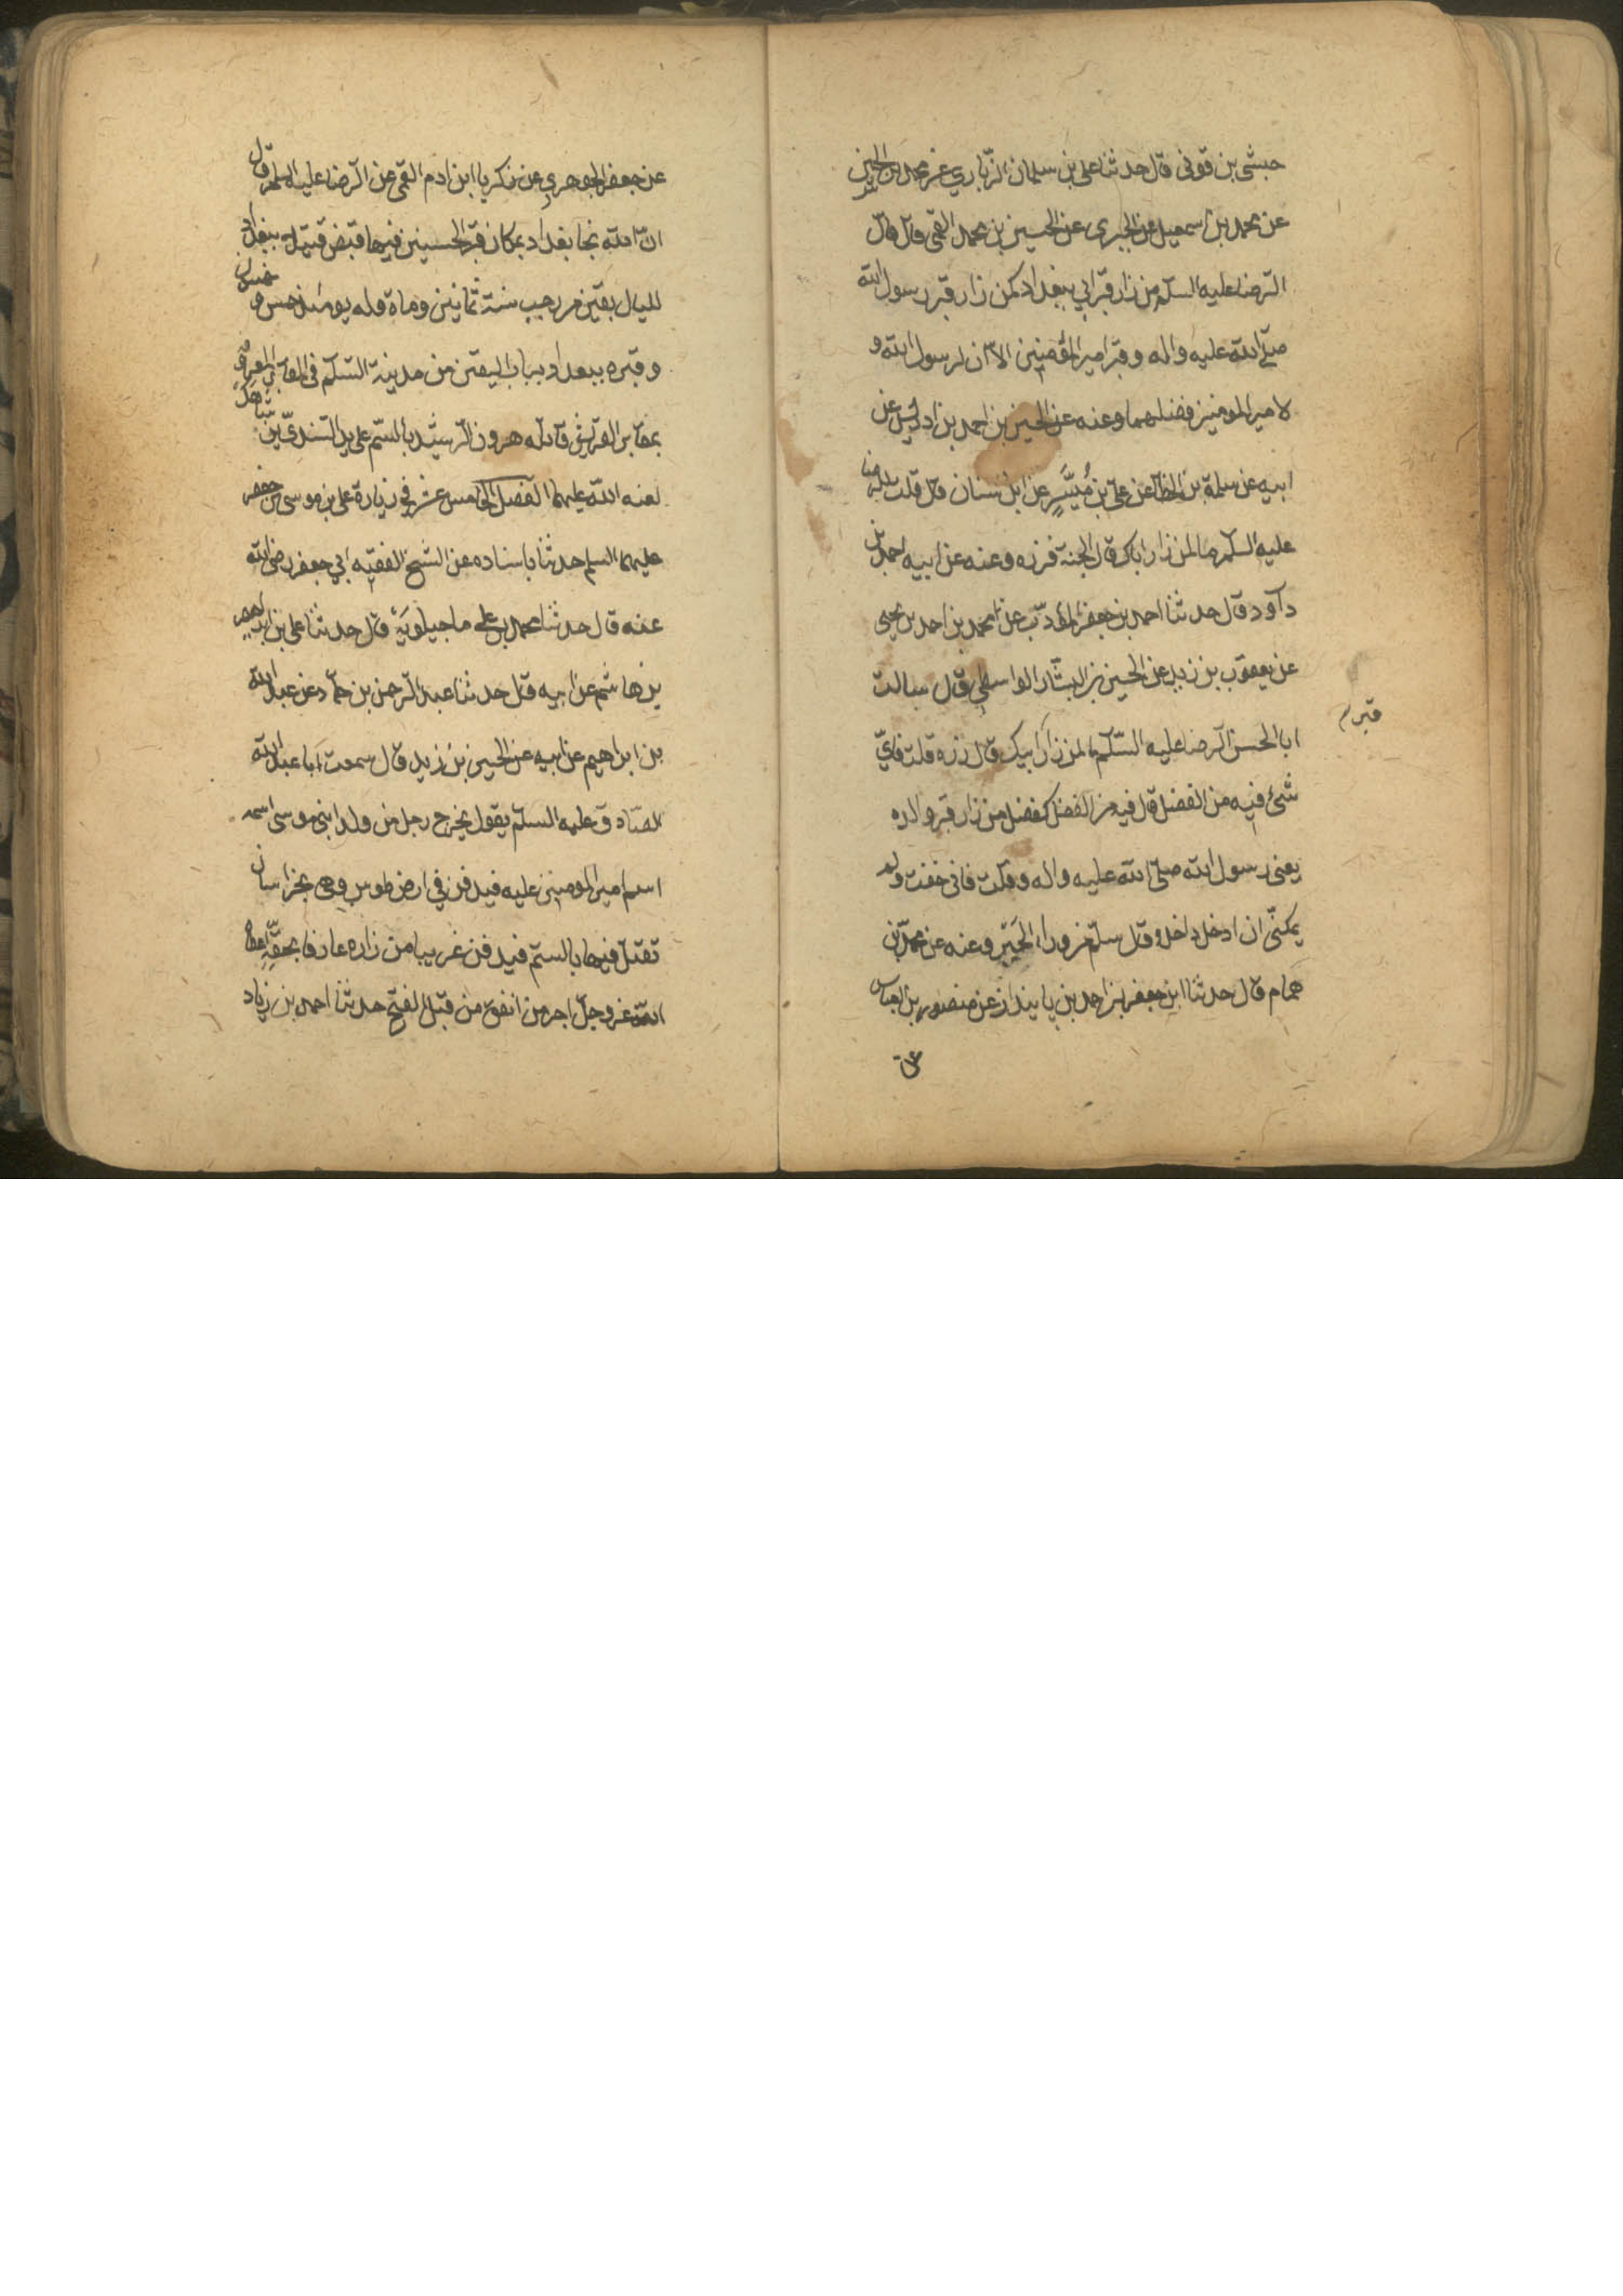 حبشي بن قوني قال حدثنا علي بن سليمان الزراري عن محمد بن الحسين
عن محمد بن اسمعيل عن الخيبري عن الحسين بن محمد القمي قال قال
الرضا عليه السلم من زار قبر ابي ببغداد كمن زار قبر رسول الله
صلى الله عليه واله وقبر امير المؤمنين الا ان لرسول الله و
لامير المومنين فضلهما وعنه عن الحسين بن احمد بن ادريس عن
ابيه عن سلمة بن الخطاب عن علي بن مُيَسَّرٍ عن ابن سنان قال قلت للرضا
عليه السلم ما لمن زار اباك قال الجنة فزره وعنه عن ابيه احمد بن
داود قال حدثنا احمد بن جعفر المؤدب عن محمد بن احمد بن يحيى
عن يعقوب بن يزيد عن الحسين بن البشار الواسطي قال سالت
ابا الحسن الرضا عليه السلم ما لمن زار ابيك قال زره قلت فاي
قبر
شئ فيه من الفضل قال فيه من الفضل كفضل من زار قبر والده
يعني رسول الله صلى الله عليه واله وقلت فاني خفت ولم
يمكني ان ادخل داخل وقال سلم من وراء الحير وعنه عن محمد بن
همام قال حدثنا ابن جعفر بن احمد بن پايندار عن منصور بن العباس
عن
عن جعفر الجوهري عن زكريا ابن ادم القمي عن الرضا عليه السلم قال
ان الله نجا بغداد بمكان قبر الحسينين فيها قبض قتيلا ببغداد
لليال بقين من رجب سنة ثمانين وماة وله يومئذ خمس و خمسون
وقبره ببغداد بباب التين من مدينة السلم في المقابر المعروف
بمقابر القريش قاتله هرون الرشيد بالسم على يد السندي بن شاهك
لعنه الله عليهما الفصل الخامس عشر في زيارة علي بن موسى بن جعفر
عليهما السلم حدثنا باسناده عن الشيخ الفقيه ابي جعفر رضي الله
عنه قال حدثنا محمد بن علي ماجيلويه قال حدثنا علي بن ابراهيم
بن هاشم عن ابيه قال حدثنا عبد الرحمن بن حماد عن عبد الله
بن ابراهيم عن ابيه عن الحسين بن زيد قال سمعت ابا عبد الله
الصادق عليه السلم يقول يخرج رجل من ولد ابني موسى اسمه
اسم امير المومنين عليه فيدفن في ارض طوس وهي بخراسان
تقتل فيها بالسم فيدفن غريبا من زاره عارفا بحقه اعطاه
الله عز وجل اجر من انفق من قبل الفتح حدثنا احمد بن زياد